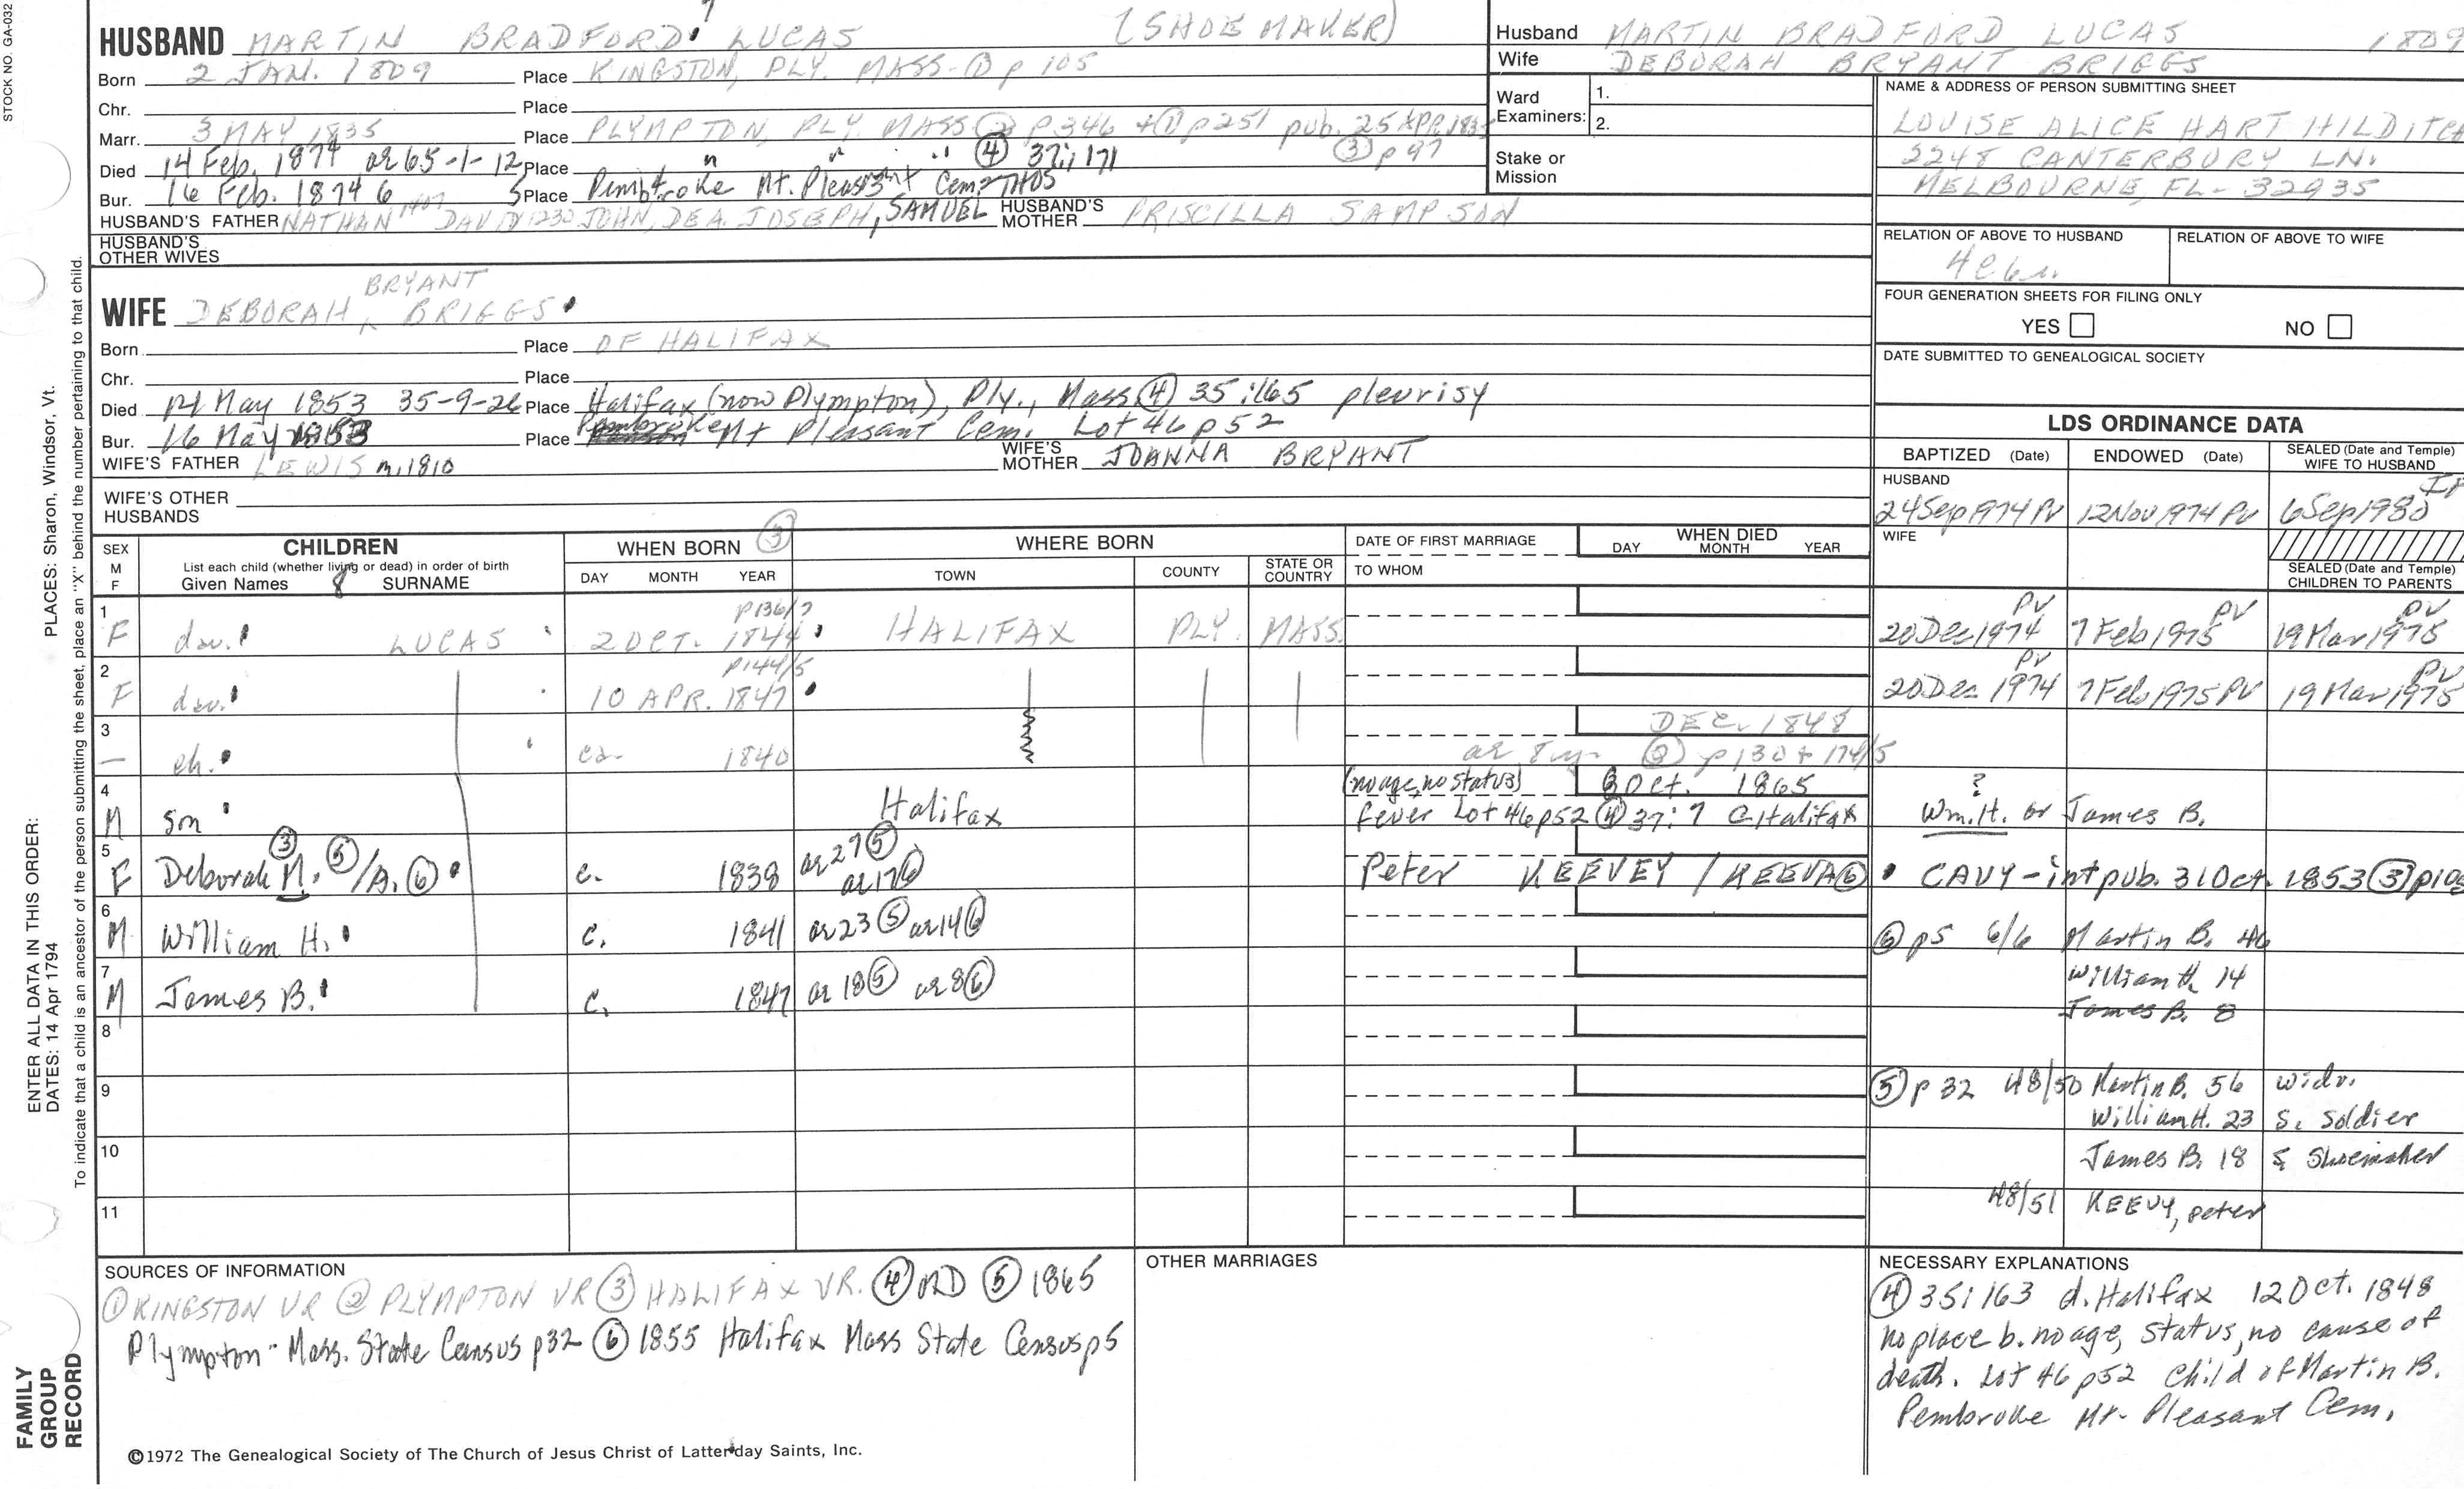 STOCK NO. GA-032
HUSBAND MARTIN BRADFORD LUCAS (SHOEMAKER)
Born 2 JAN. 1809 Place KINGSTON, PLY. MASS-① p 105
Chr. Place
Marr. 3 MAY 1835 Place PLYMPTON, PLY. MASS ② p346 + ① p251 pub. 25 APR 1835
③ p 97
Died 14 Feb. 1874 ae 65-1-12 Place " " " ④ 37:171
Bur. 16 Feb. 1874 Place Pembroke Mt. Pleasant Cem.
HUSBAND'S FATHER NATHAN DAVID JOHN, DEA. JOSEPH, SAMUEL HUSBAND'S MOTHER PRISCILLA SAMPSON
HUSBAND'S OTHER WIVES
BRYANT
WIFE DEBORAH ^ BRIGGS
Born Place OF HALIFAX
Chr. Place
Died 14 May 1853 35-9-26 Place Halifax (now Plympton), Ply., Mass ④ 35:165 pleurisy
Bur. 16 May 1853 Place Pembroke Mt Pleasant Cem. Lot 46 p 52
WIFE'S FATHER LEWIS m. 1810 WIFE'S MOTHER JOANNA BRYANT
WIFE'S OTHER HUSBANDS
Husband MARTIN BRADFORD LUCAS 1809
Wife DEBORAH BRYANT BRIGGS
Ward Examiners: 1.
2.
Stake or Mission
NAME & ADDRESS OF PERSON SUBMITTING SHEET
LOUISE ALICE HART HILDITCH
2248 CANTERBURY LN.
MELBOURNE, FL- 32935
RELATION OF ABOVE TO HUSBAND RELATION OF ABOVE TO WIFE
FOUR GENERATION SHEETS FOR FILING ONLY
YES NO
DATE SUBMITTED TO GENEALOGICAL SOCIETY
LDS ORDINANCE DATA
BAPTIZED (Date) ENDOWED (Date) SEALED (Date and Temple) WIFE TO HUSBAND
HUSBAND
24 Sep 1974 PV 12 Nov 1974 PV 6 Sep 1980
WIFE
SEALED (Date and Temple) CHILDREN TO PARENTS
SEX M F
CHILDREN
List each child (whether living or dead) in order of birth
Given Names 8 SURNAME
WHEN BORN ③
DAY MONTH YEAR
WHERE BORN
TOWN COUNTY STATE OR COUNTRY
DATE OF FIRST MARRIAGE
TO WHOM
WHEN DIED
DAY MONTH YEAR
1 F dau. LUCAS 2 OCT. 1844 p136/7 HALIFAX PLY. MASS. 20 Dec 1974 PV 7 Feb 1975 PV 19 Mar 1975 PV
2 F dau. 10 APR. 1847 p144/5 20 Dec 1974 PV 7 Feb 1975 PV 19 Mar 1975 PV
3 — ch. ca. 1840 DEC. 1848
ae 8 yr p130 + 174/5
4 M son Halifax (no age, no status) Oct. 1865
Fever Lot 46 p52 ④ 37:7 @ Halifax ? Wm. H. or James B.
5 F Deborah M. ③ ⑤ /A. ⑥ c. 1838 ae 27 ⑤ ae 17 ⑥ Peter KEEVEY / KEEVA ⑥ CAVY - int pub. 31 Oct. 1853 ③
6 M William H. c. 1841 ae 23 ⑤ ae 14 ⑥ ⑥ p5 6/6 Martin B. 46
William H. 14
7 M James B. c. 1847 ae 18 ⑤ ae 8 ⑥ James B. 8
8
9 ⑤ p 32 48/50 Martin B. 56 widr.
William H. 23 S. Soldier
10 James B. 18 S Shoemaker
11 48/51 KEEVY, Peter
SOURCES OF INFORMATION
① KINGSTON VR ② PLYMPTON VR ③ HALIFAX VR. ④ MD ⑤ 1865
Plympton - Mass. State Census p32 ⑥ 1855 Halifax Mass State Census p5
OTHER MARRIAGES
NECESSARY EXPLANATIONS
④ 35:163 d. Halifax 12 Oct. 1848
no place b. no age, status, no cause of
death. Lot 46 p52 Child of Martin B.
Pembroke Mt. Pleasant Cem.
©1972 The Genealogical Society of The Church of Jesus Christ of Latter-day Saints, Inc.
FAMILY GROUP RECORD
ENTER ALL DATA IN THIS ORDER:
DATES: 14 Apr 1794 PLACES: Sharon, Windsor, Vt.
To indicate that a child is an ancestor of the person submitting the sheet, place an "X" behind the number pertaining to that child.